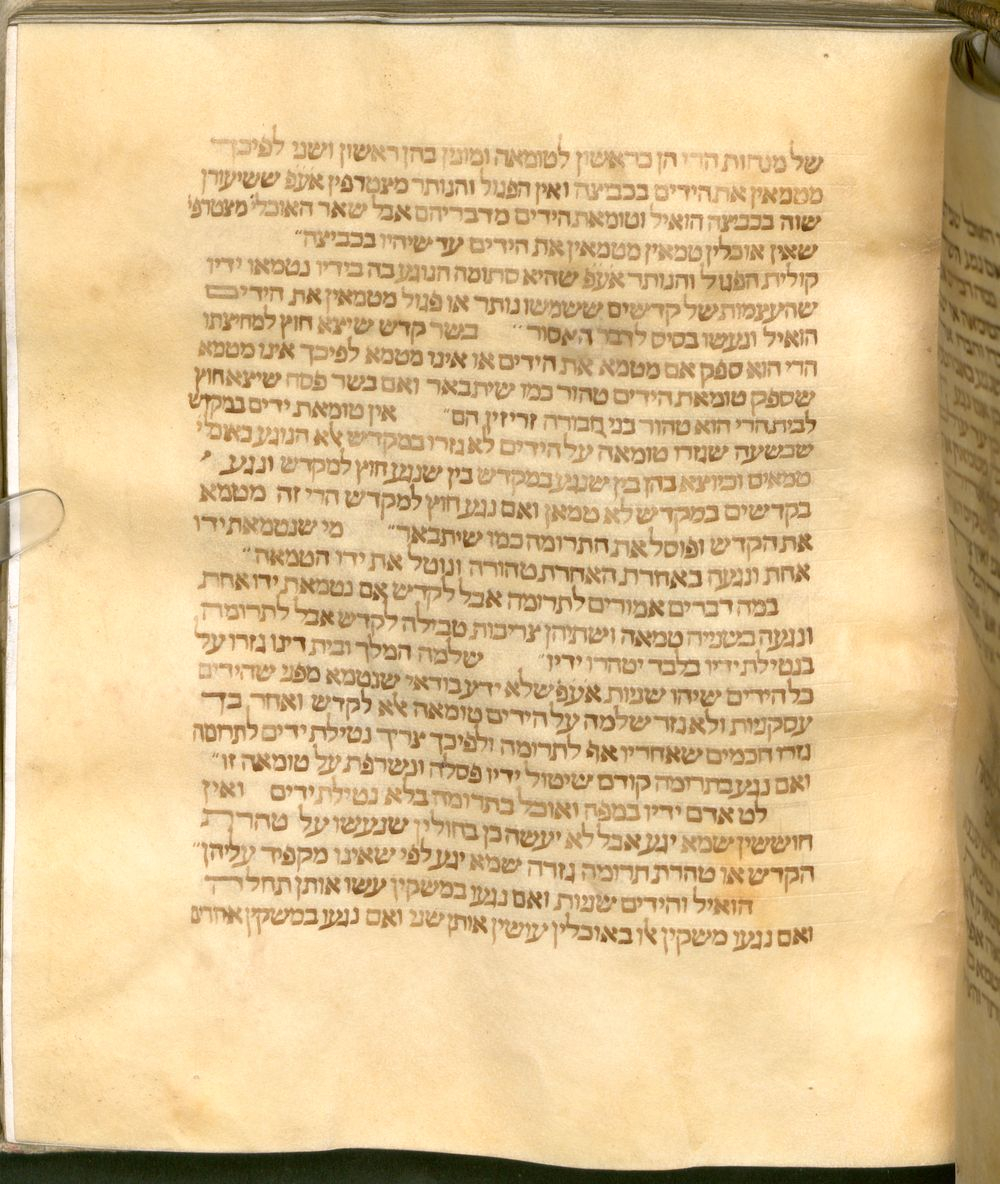 של מנחות הרי הן כראשון לטומאה ומונין בהן ראשון ושני לפיכך
מטמאין את הידים בכביצה ואין הפגול והנותר מצטרפין אעפ ששיעורן
שוה בכביצה הואיל וטומאת הידים מדבריהם אבל שאר האוכלי׳ מצטרפי׳
שאין אוכלין טמאין מטמאין את הידים עד שיהיו בכביצה״
קולית הפגול והנותר אעפ שהיא סתומה הנוגע בה בידיו נטמאו ידיו
שהעצמות של קדשים ששמשו נותר או פגול מטמאין את הידים
הואיל ונעשו בסיס לדבר האסור״ בשר קדש שיצא חוץ למחיצתו
הרי הוא ספק אם מטמא את הידים או אינו מטמא לפיכך אינו מטמא
שספק טומאת הידים טהור כמו שיתבאר ואם בשר פסח שיצא חוץ
לבית הרי הוא טהור בני חבורה זריזין הם״ אין טומאת ידים במקדש
שבשעה שגזרו טומאה על הידים לא גזרו במקדש אלא הנוגע באוכלי׳
טמאים וכיוצא בהן בין שנגע במקדש בין שנגע חוץ למקדש ונגע
בקדשים במקדש לא טמאן ואם נגע חוץ למקדש הרי זה מטמא
את הקדש ופוסל את התרומה כמו שיתבאר״ מי שנטמאת ידו
אחת ונגעה באחרת האחרת טהורה ונוטל את ידו הטמאה״
במה דברים אמורים לתרומה אבל לקדש אם נטמאת ידו אחת
ונגעה בשנייה טמאה ושתיהן צריכות טבילה לקדש אבל לתרומה
בנטילת ידיו בלבד יטהרו ידיו״ שלמה המלך ובית דינו גזרו על
כל הידים שיהו שניות אעפ שלא ידע בודאי שנטמא מפני שהידים
עסקניות ולא גזר שלמה על הידים טומאה אלא לקדש ואחר כך
גזרו חכמים שאחריו אף לתרומה ולפיכך צריך נטילת ידים לתרומה
ואם נגע בתרומה קודם שיטול ידיו פסלה ונשרפת על טומאה זו״
לט אדם ידיו במפה ואוכל בתרומה בלא נטילת ידים ואין
חוששין שמא יגע אבל לא יעשה כן בחולין שנעשו על טהרת
הקדש או טהרת תרומה גזרה שמא יגע לפי שאינו מקפיד עליהן״
הואיל והידים שניות ואם נגעו במשקין עשו אותן תחלה
ואם נגעו משקין אלו באוכלין עושין אותן שני ואם נגעו במשקין אחרים